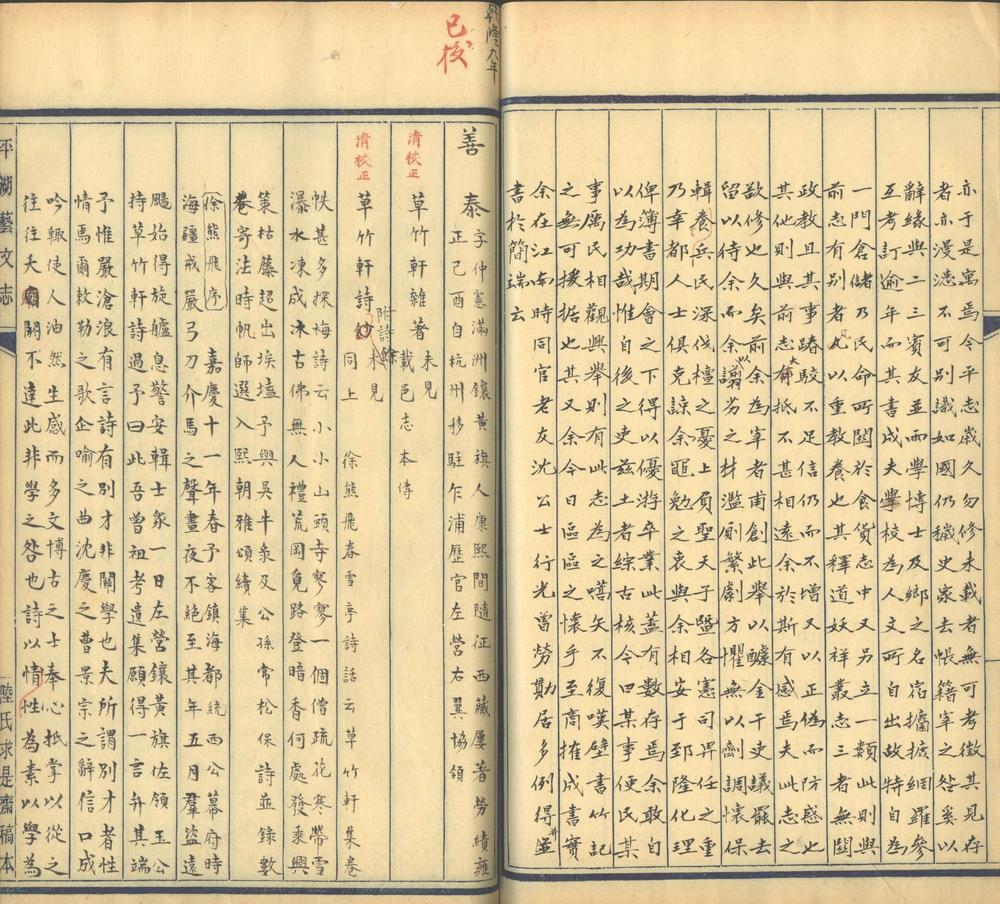 亦于是寓焉今平志歲久勿修未載者無可考徵其見存
者亦漫漶不可别識如國仍穢史家去帳籍宰之咎奚以
辭緣與二三賓友並而學博士及鄉之名宿擴摭網羅參
互考訂逾年而其書成夫學校為人文所自出故特自為
一門倉儲乃民命所關於食貨志中又另立一類此則與
前志有别者也凡以重教養也其釋道妖祥叢志三者無關
政教且其事踳駁不足信仍而不增又以正偽而防惑也
其他則與前志大有抵不甚相遠余於斯有感焉夫此志之
欲修也久矣前余為宰者甫創此舉以醵金干吏議罷去
留以待余而余以譾劣之材濫廁繁劇方懼無以劑調懷保
輯養兵民深伐檀之憂上負聖天子暨各憲司畀任之重
乃幸都人士俱克諒余黽勉之衷與余相安于郅隆化理
俾簿書期會之下得以優游卒業此蓋有數存焉余敢自
以為功哉惟自後之吏茲土者綜古核今曰某事便民某
事厲民相觀興舉則有此志為之嚆矢不復嘆壁書竹記
之無可援据也其又余今日區區之懷乎至高擁成書實
余在江南時同官老友沈公士行光曾勞勩居多例得並
書於簡端云
乾隆九年
已校
善泰字仲憲滿洲鑲黃旗人康熙間隨征西藏屢著勞績雍
正己酉自杭州移駐乍浦歷官左營右翼協領
清校正
草竹軒雜著未見 載邑志本傳
清校正
草竹軒詩鈔附詩餘未見 同上 徐熊飛春雪亭詩話云草竹軒集卷
帙甚多探梅詩云小小山頭寺寥寥一個僧疏花寒帶雪
瀑水凍成冰古佛無人禮荒岡覓路登暗香何處發乘興
策枯藤超出埃壒予與吳牛泉及公孫常松保詩並錄數
卷寄法時帆師選入熙朝雅頌續集
徐熊飛序 嘉慶十一年春予客鎮海都統西公幕府時
海疆戒嚴弓刀介馬之聲晝夜不絕至其年五月羣盜遠
颺始得旋艫息警安輯士眾一日左營鑲黃旗佐領玉公
持草竹軒詩過予曰此吾曾祖考遺集願得一言弁其端
予惟嚴滄浪有言詩有别才非關學也夫所謂别才者性
情焉爾敕勒之歌企喻之曲沈慶之曹景宗之辭信口成
吟輒使人油然生感而多文博古之士奉心抵掌以從之
往往夭閼不達此非學之咎也詩以情性為素以學為
平湖藝文志
陸氏求是齋稿本